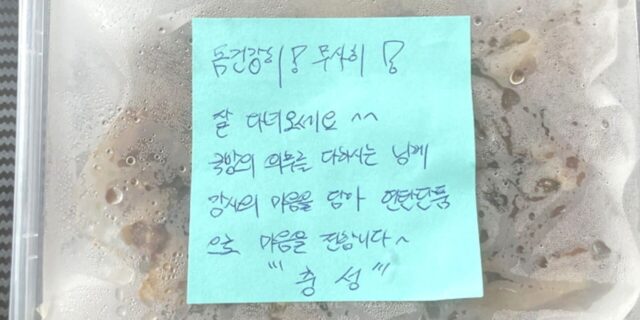 몸건강히! 무사히!
잘 다녀오세요 ^^
국방의 의무를 다하시는 님께
감사의 마음을 담아 연탄단품
으로 마음을 전합니다~
"' 충성 "'